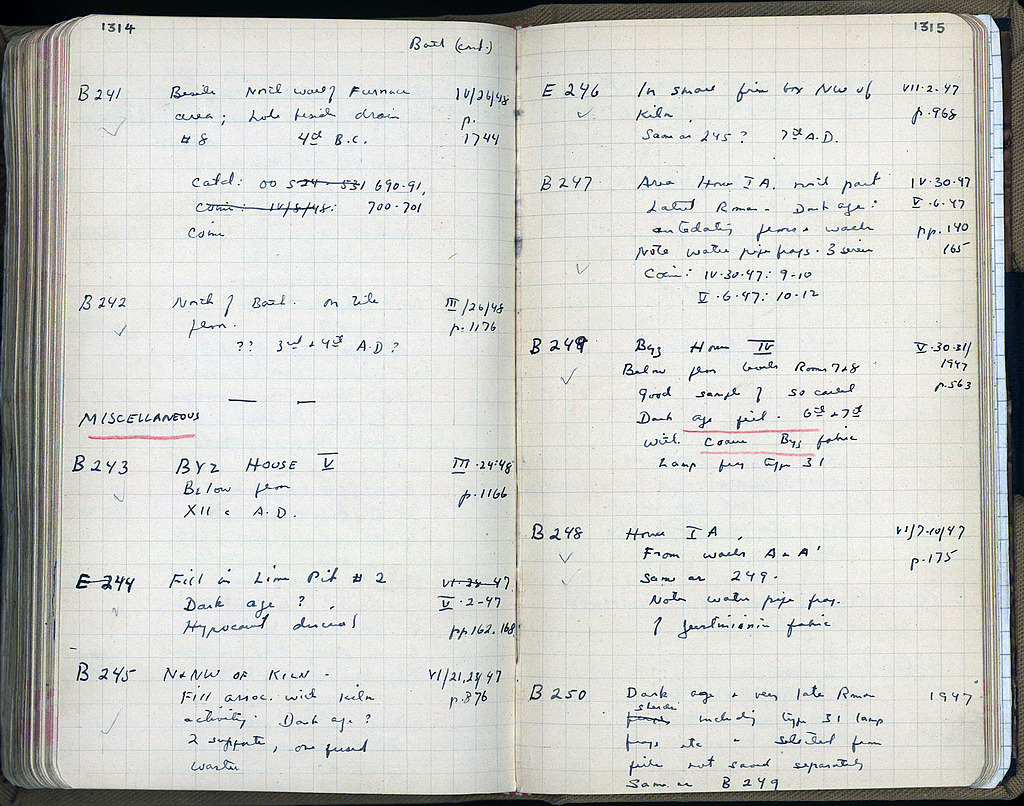 1314
Bath (cont.)
B 241 Beside North wall of Furnace IV/26/48
area; hole beside drain p.
# 8 4th B.C. 1744
Catd: 00 524-531 690-91,
Coins: IV/8/48: 700-701
Coins
B 242 North of Bath. on tile III/26/48
floor. p. 1176
?? 3rd + 4th A.D?
MISCELLANEOUS
B 243 BYZ HOUSE V III-24-48
Below floor p. 1166
XII c A.D.
E 244 Fill in Lime Pit # 2 VI-28-47
Dark age? V-2-47
Hypocaust pp 162, 168
B 245 N+NW OF KILN - VI/21,24/47
Fill assoc. with kiln p. 876
activity. Dark age?
2 supports, one fused
waster
1315
E 246 In small NW of VII-2-47
Kiln. p. 968
Same as 245? 7th A.D.
B 247 Area House IA, north part IV-30-47
Latest Roman - Dark age: V-6-47
antedating floors + walls pp. 140
Note water pipe frags. 3 165
Coins: IV-30-47: 9-10
V-6-47: 10-12
B 249 Byz House IV V-30-31/
Below floor levels Rooms 7+8 1947
good sample of so called p. 563
Dark age fill. 6th + 7th
with coarse Byz fabric
Lamp frag type 31
B 248 House IA, VI/7-10/47
From walls A + A' p. 175
Same as 249.
Note water pipe frag.
of Justinianic fabric
B 250 Dark age + very late Roman 1947
sherds
including type 31 lamp
frags etc - selected from
fills not saved separately
Same as B 249